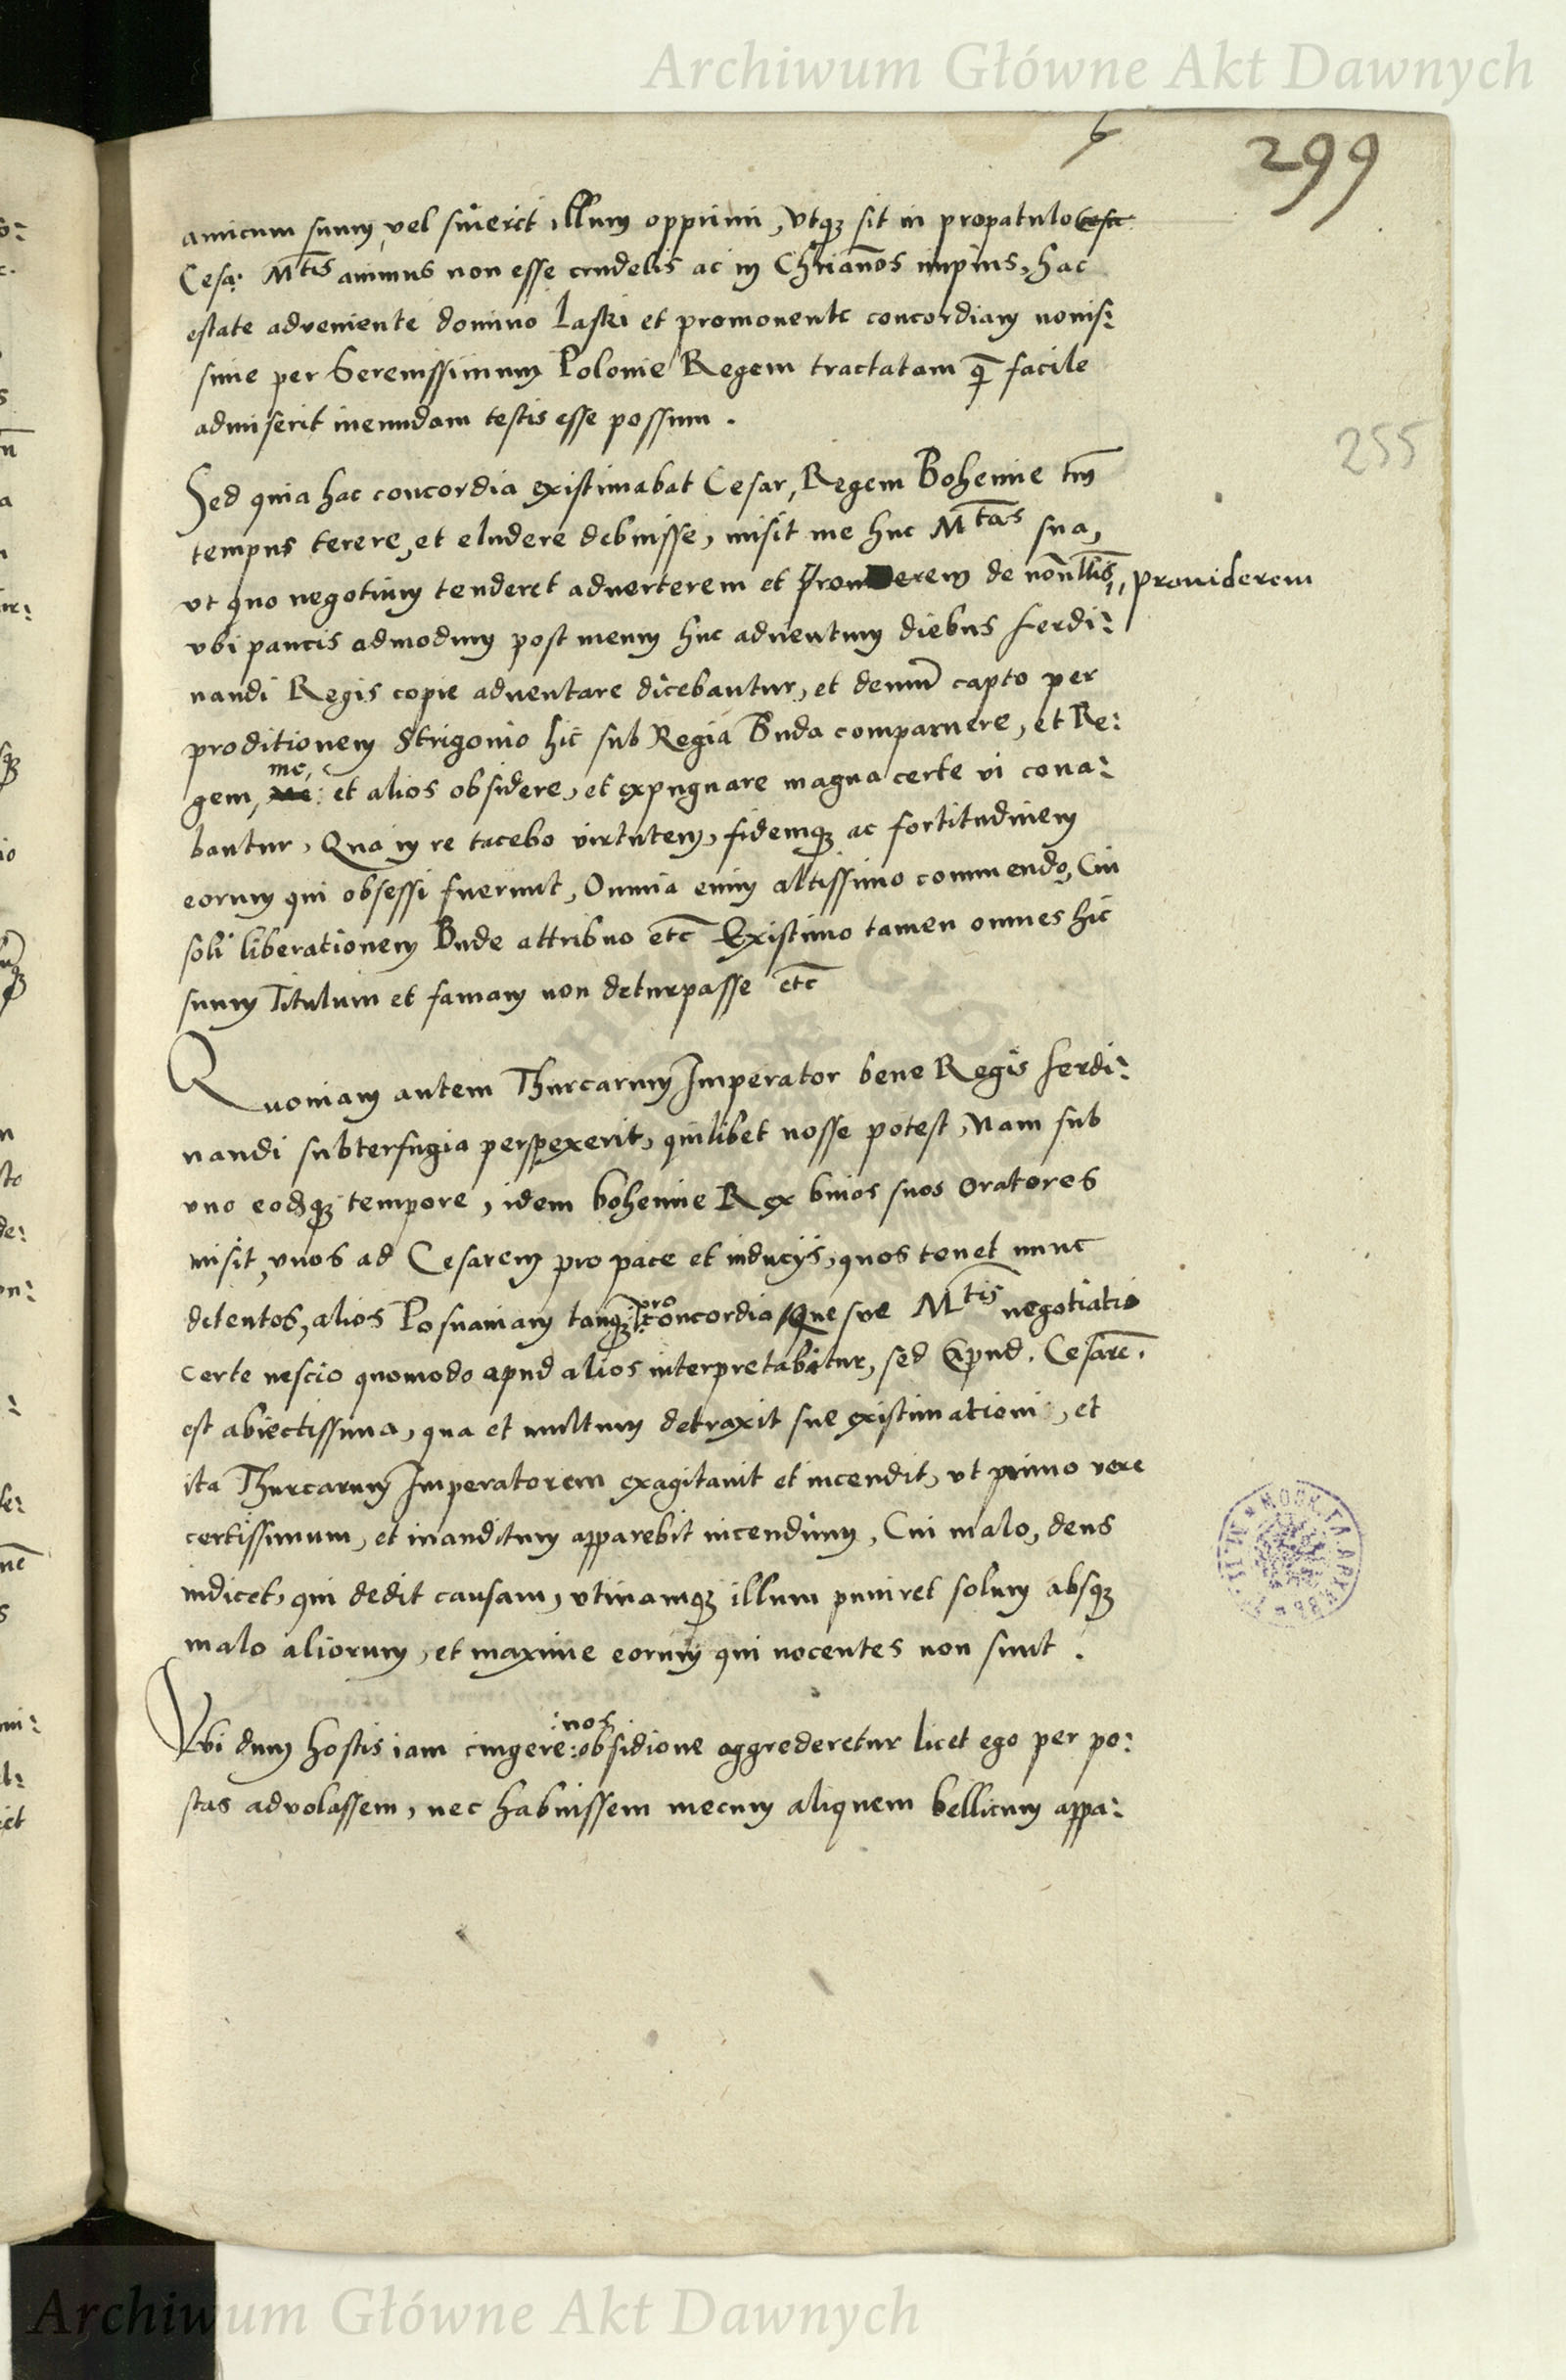 Archiwum Główne Akt Dawnych
6
299
amicum suum, vel sinierit illum opprimi, Vtq₃ sit in propatulo
Cesa: Mtis animus non esse crudelis ac in Chrianos impius, hac
estate adveniente domino Laski et promovente concordiam novis:
sime per Serenissimum Polonie Regem tractatam q̄ facile
admiserit ineundam testis esse possum.
255
Sed quia hac concordia existimabat Cesar, Regem Bohemie tm̄
tempus terere, et eludere debuisse, misit me huc Mtas sua,
vt quo negotium tenderet adverterem et de nōnullis, providerem
vbi paucis admodum post meum huc adventum diebus Ferdi:
nandi Regis copie adventare dicebantur, et demum capto per
proditionem Strigonio hic sub Regia Buda comparuere, et Re:
gem, me, et alios obsidere, et expugnare magna certe vi cona:
bantur, Qua in re tacebo virtutem, fidemq₃ ac fortitudinem
eorum qui obsessi fuerunt, Omnia enim altissimo commendo, Cui
soli liberationem Bude attribuo etc̄ Existimo tamen omnes hic
suum Titulum et famam non deturpasse etc̄
Quoniam autem Thurcarum Imperator bene Regis Ferdi:
nandi subterfugia perspexerit, quilibet nosse potest, Nam sub
vno eodq₃ tempore, idem bohemie Rex binos suos Oratores
misit, vnos ad Cesarem pro pace et inducijs, quos tenet nunc
detentos, alios Posnaniam tanq₃ pro concordia, Que sue Mtis negotiatio
certe nescio quomodo apud alios interpretabitur, sed Apud. Cesarē.
est abiectissima, qua et multum detraxit sue existimationi, et
ita Thurcarum Imperatorem exagitavit et incendit, vt primo vere
certissimum, et inauditum apparebit incendium, Cui malo, deus
indicet, qui dedit causam, vtinamq₃ illum puniret solum absq₃
malo aliorum, et maxime eorum qui nocentes non sunt.
Vbi dum hostis iam cingere :nos: obsidione aggrederetur licet ego per po:
stas advolassem, nec habuissem mecum aliquem bellicum appa:
Archiwum Główne Akt Dawnych